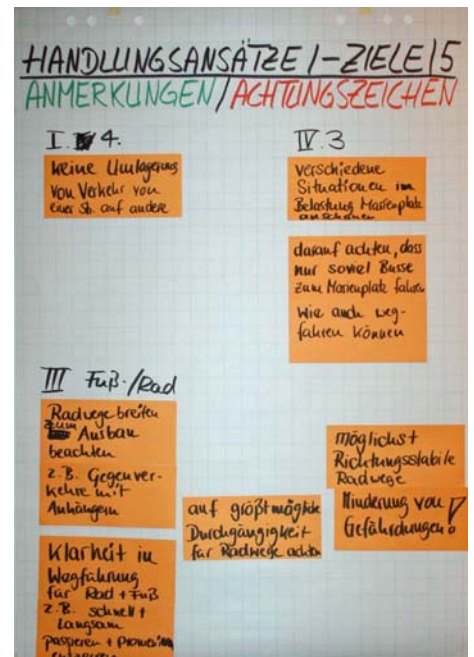 HANDLUNGSANSÄTZE / -ZIELE 15
ANMERKUNGEN / ACHTUNGSZEICHEN
I. 4.
keine Umlagerung
von Verkehr von
einer Str. auf andere
IV. 3
verschiedene
Situationen im
Belastung Marienplatz
anschauen
darauf achten, dass
nur soviel Busse
zum Marienplatz fahren
wie auch weg-
fahren können
III Fuß-/Rad
Radwege breiten
zum Ausbau
beachten
z.B. Gegenver-
kehre mit
Anhängern
Klarheit in
Wegführung
für Rad + Fuß
z.B. schnell +
langsam
passieren +
auf größtmögliche
Durchgängigkeit
für Radwege achten
möglichst
Richtungsstabile
Radwege
Minderung von
Gefährdungen!